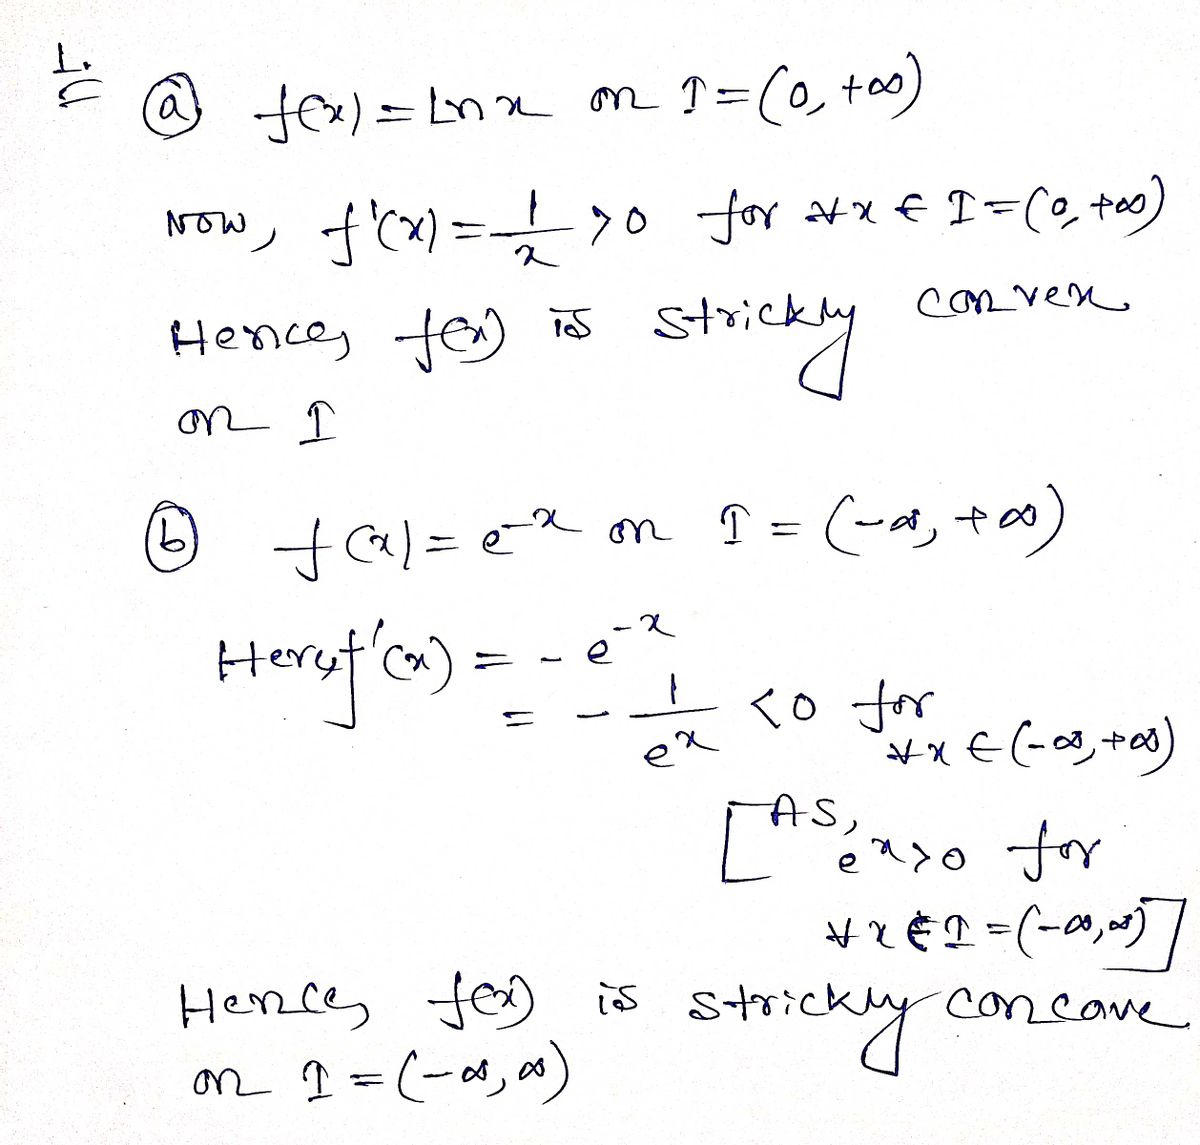 1.
(a) f(x) = Ln x on I = (0, +∞)
Now, f'(x) = 1/x > 0 for ∀x ∈ I = (0, +∞)
Hence, f(x) is strickly convex
on I
(b) f(x) = e^-x on I = (-∞, +∞)
Here, f'(x) = - e^-x
= - 1/e^x < 0 for
∀x ∈ (-∞, +∞)
[As,
e^x > 0 for
∀x ∈ I = (-∞, ∞)]
Hence, f(x) is strickly concave
on I = (-∞, ∞)